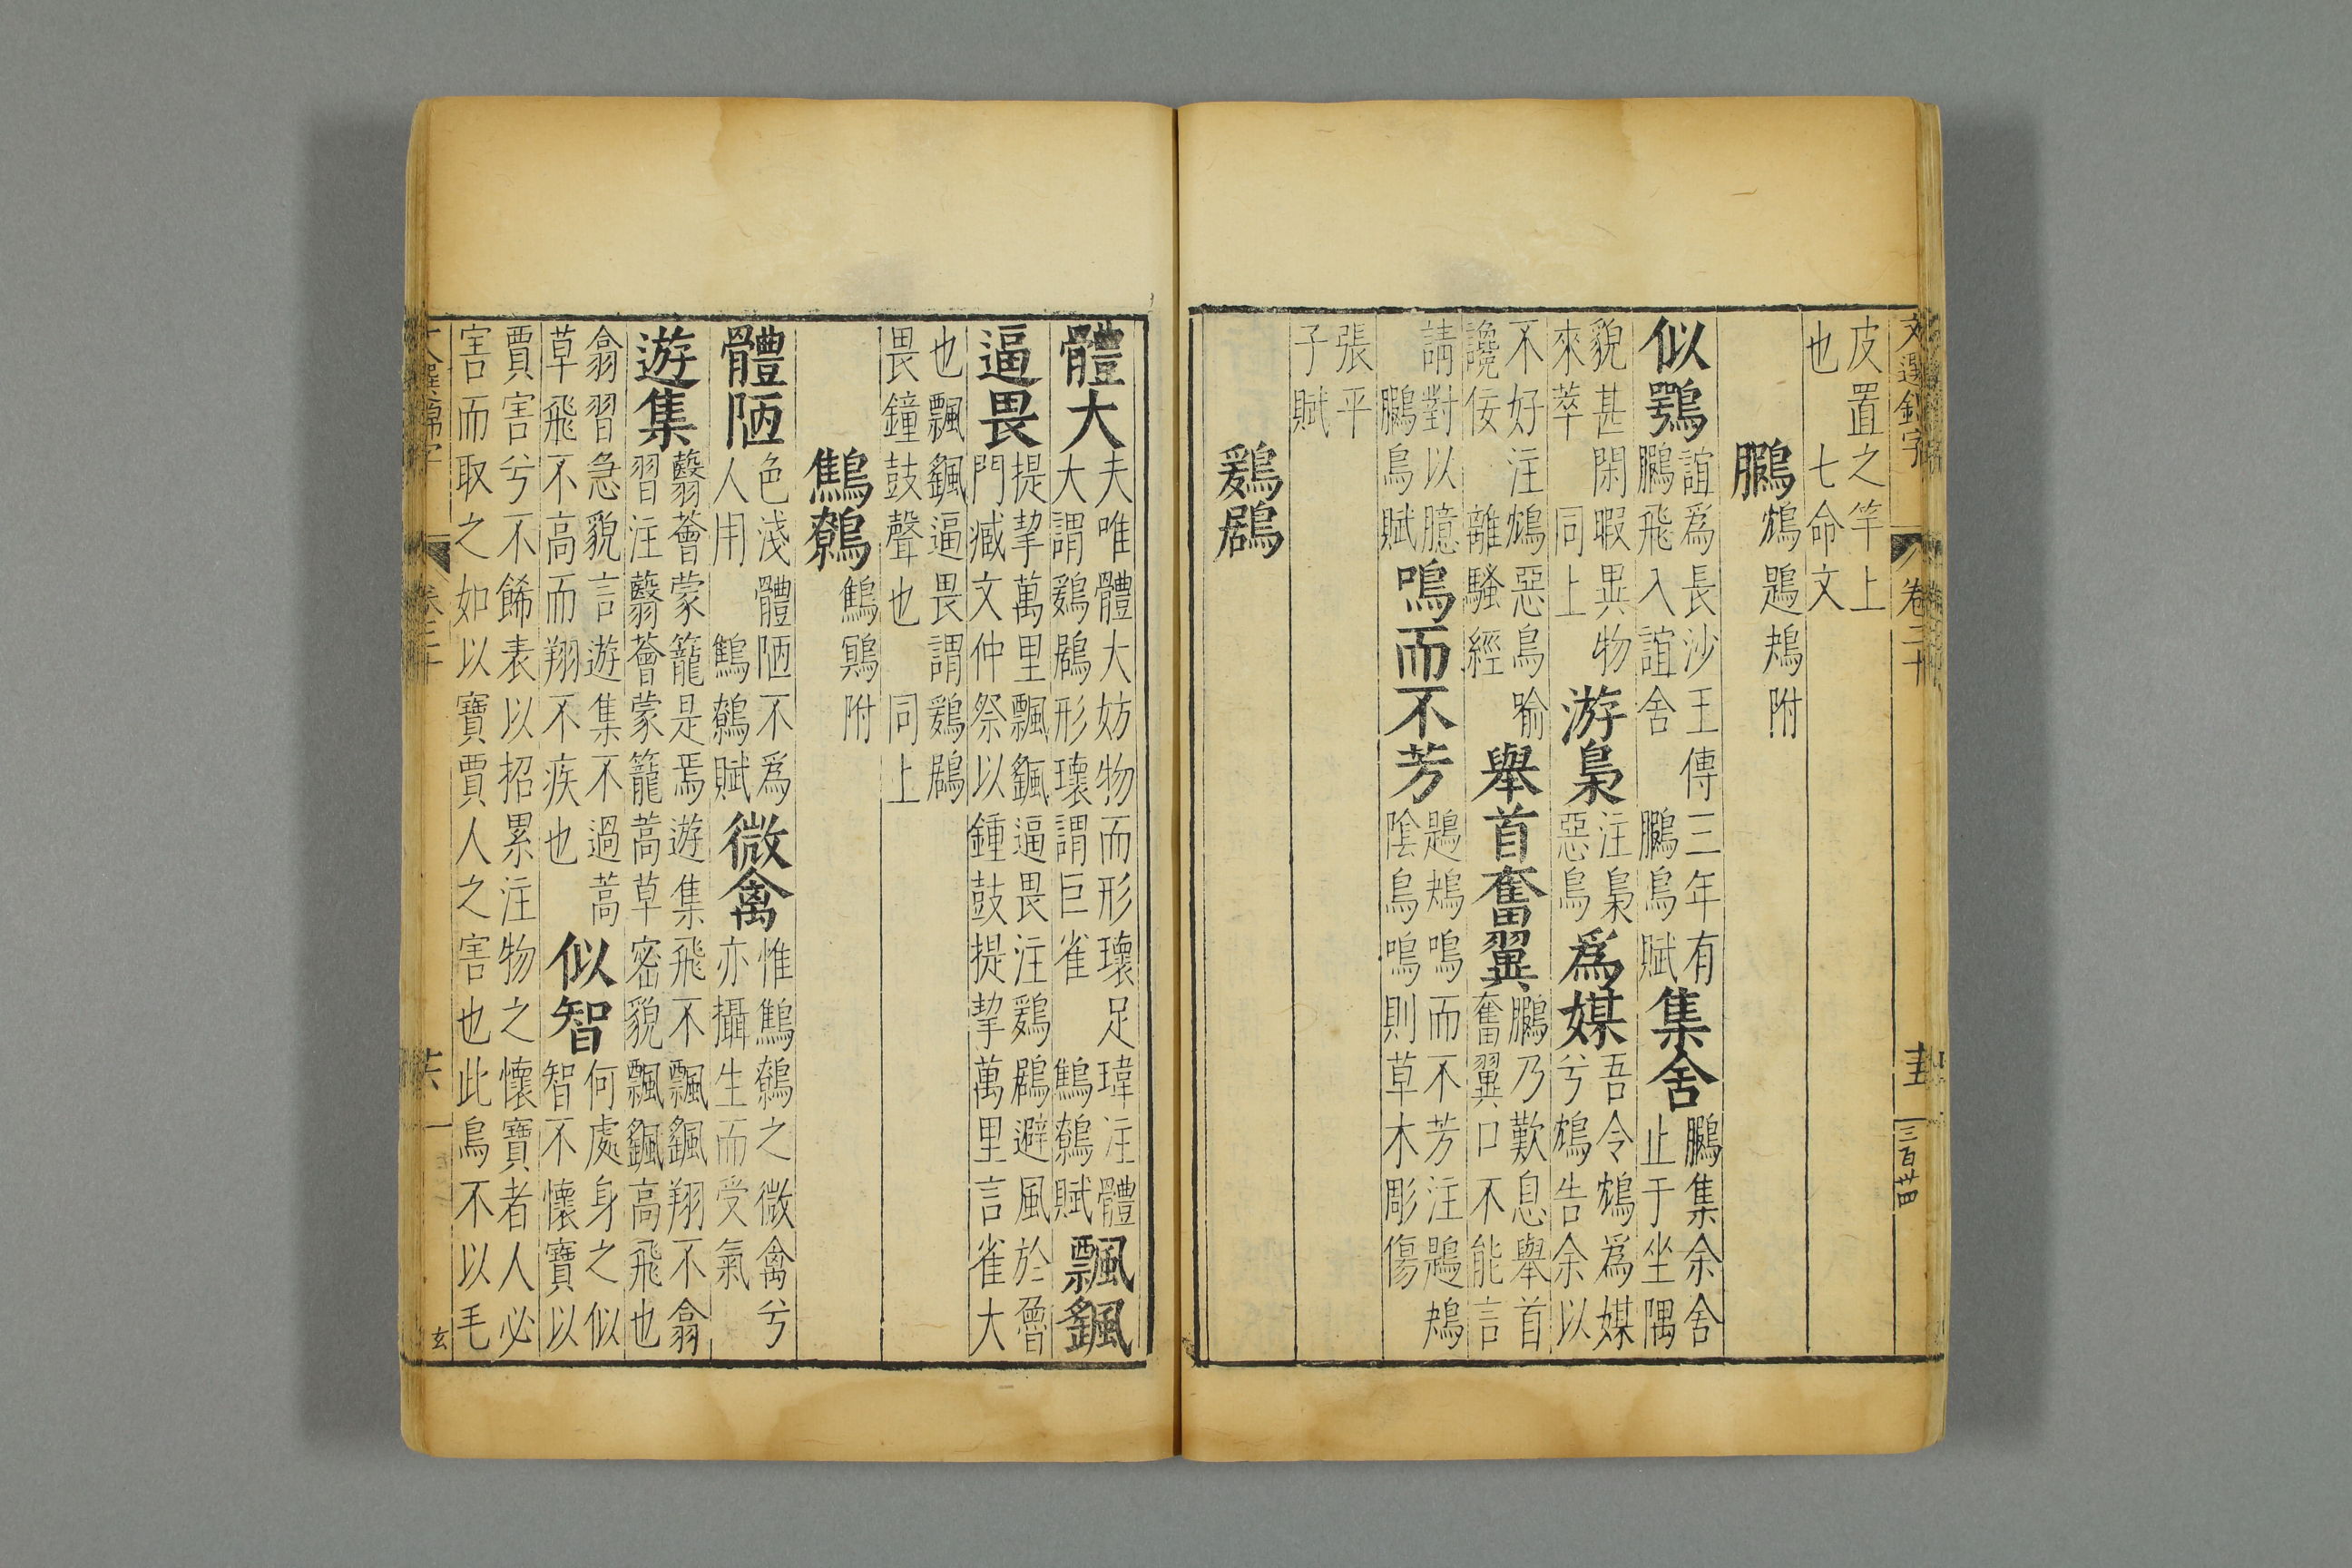 文選錦字 卷二十 三百廿四
皮置之竿上
也 七命文
鵩 鴆鶗鴂附
似鶚 誼爲長沙王傅三年有
鵩飛入誼舍 鵩鳥賦 集舍 鵩集余舍
止于坐隅
貌甚閑暇異物
來萃 同上 游梟 注梟
惡鳥 爲媒 吾令鴆爲媒
兮鴆告余以
不好注鴆惡鳥喻
讒佞 離騷經 舉首奮翼 鵩乃歎息舉首
奮翼口不能言
請對以臆
鵩鳥賦 鳴而不芳 鶗鴂鳴而不芳注鶗鴂
陰鳥鳴則草木彫傷
張平
子賦
鶢鶋
體大 夫唯體大妨物而形瓌足瑋注體
大謂鶢鶋形瓌謂巨雀 鷦鷯賦 飄颻
逼畏 提挈萬里飄颻逼畏注鶢鶋避風於魯
門臧文仲祭以鍾鼓提挈萬里言雀大
也飄颻逼畏謂鶢鶋
畏鐘鼓聲也 同上
鷦鷯 鷦䳟附
體陋 色淺體陋不爲
人用 鷦鷯賦 微禽 惟鷦鷯之微禽兮
亦攝生而受氣
遊集 翳薈蒙籠是焉遊集飛不飄颻翔不翕
習注翳薈蒙籠蒿草密貌飄颻高飛也
翕習急貌言遊集不過蒿
草飛不高而翔不疾也 似智 何處身之似
智不懷寶以
賈害兮不飾表以招累注物之懷寶者人必
害而取之如以寶賈人之害也此鳥不以毛
玄